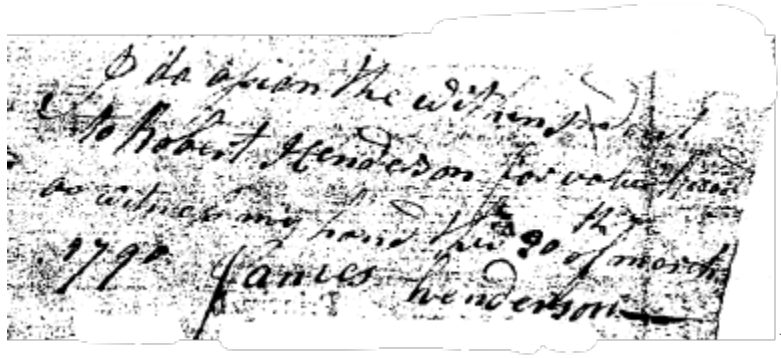 I do asign the within
to Robert Henderson for value
as witness my hand this 20 of march
1790 James henderson